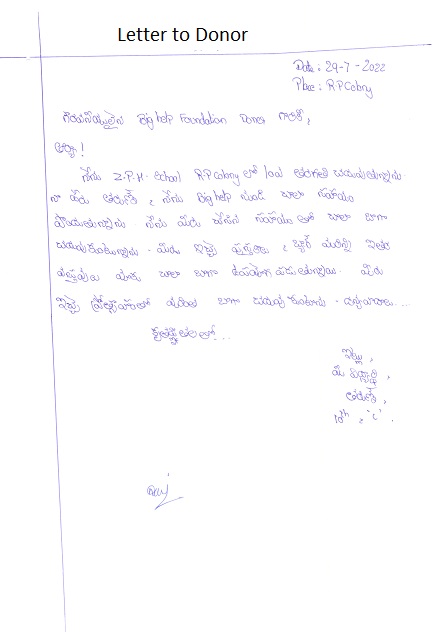 Letter to Donor
Date : 29-7-2022
Place : R P Colony
గౌరవనీయులైన Big help Foundation Donar గారికి,
ఆర్యా!
నేను Z.P.H. School R P Colony లో 10వ తరగతి చదువుతున్నాను.
నా పేరు , నేను Big help నుండి చాలా సహాయం
పొందుతున్నాను. నేను మీరు చేసిన సహాయం తో చాలా బాగా
చదువుకుంటున్నాను. మీరు ఇచ్చే పుస్తకాలు , బ్యాగ్ మరియు ఇతర
వస్తువులు మాకు చాలా బాగా ఉపయోగపడుతున్నాయి. మీరు
ఇచ్చే ప్రోత్సాహంతో మరింత బాగా చదువుకుంటాను. ధన్యవాదాలు...
కృతజ్ఞతలతో...
ఇట్లు,
మీ విద్యార్థి,
10th , 'c' .